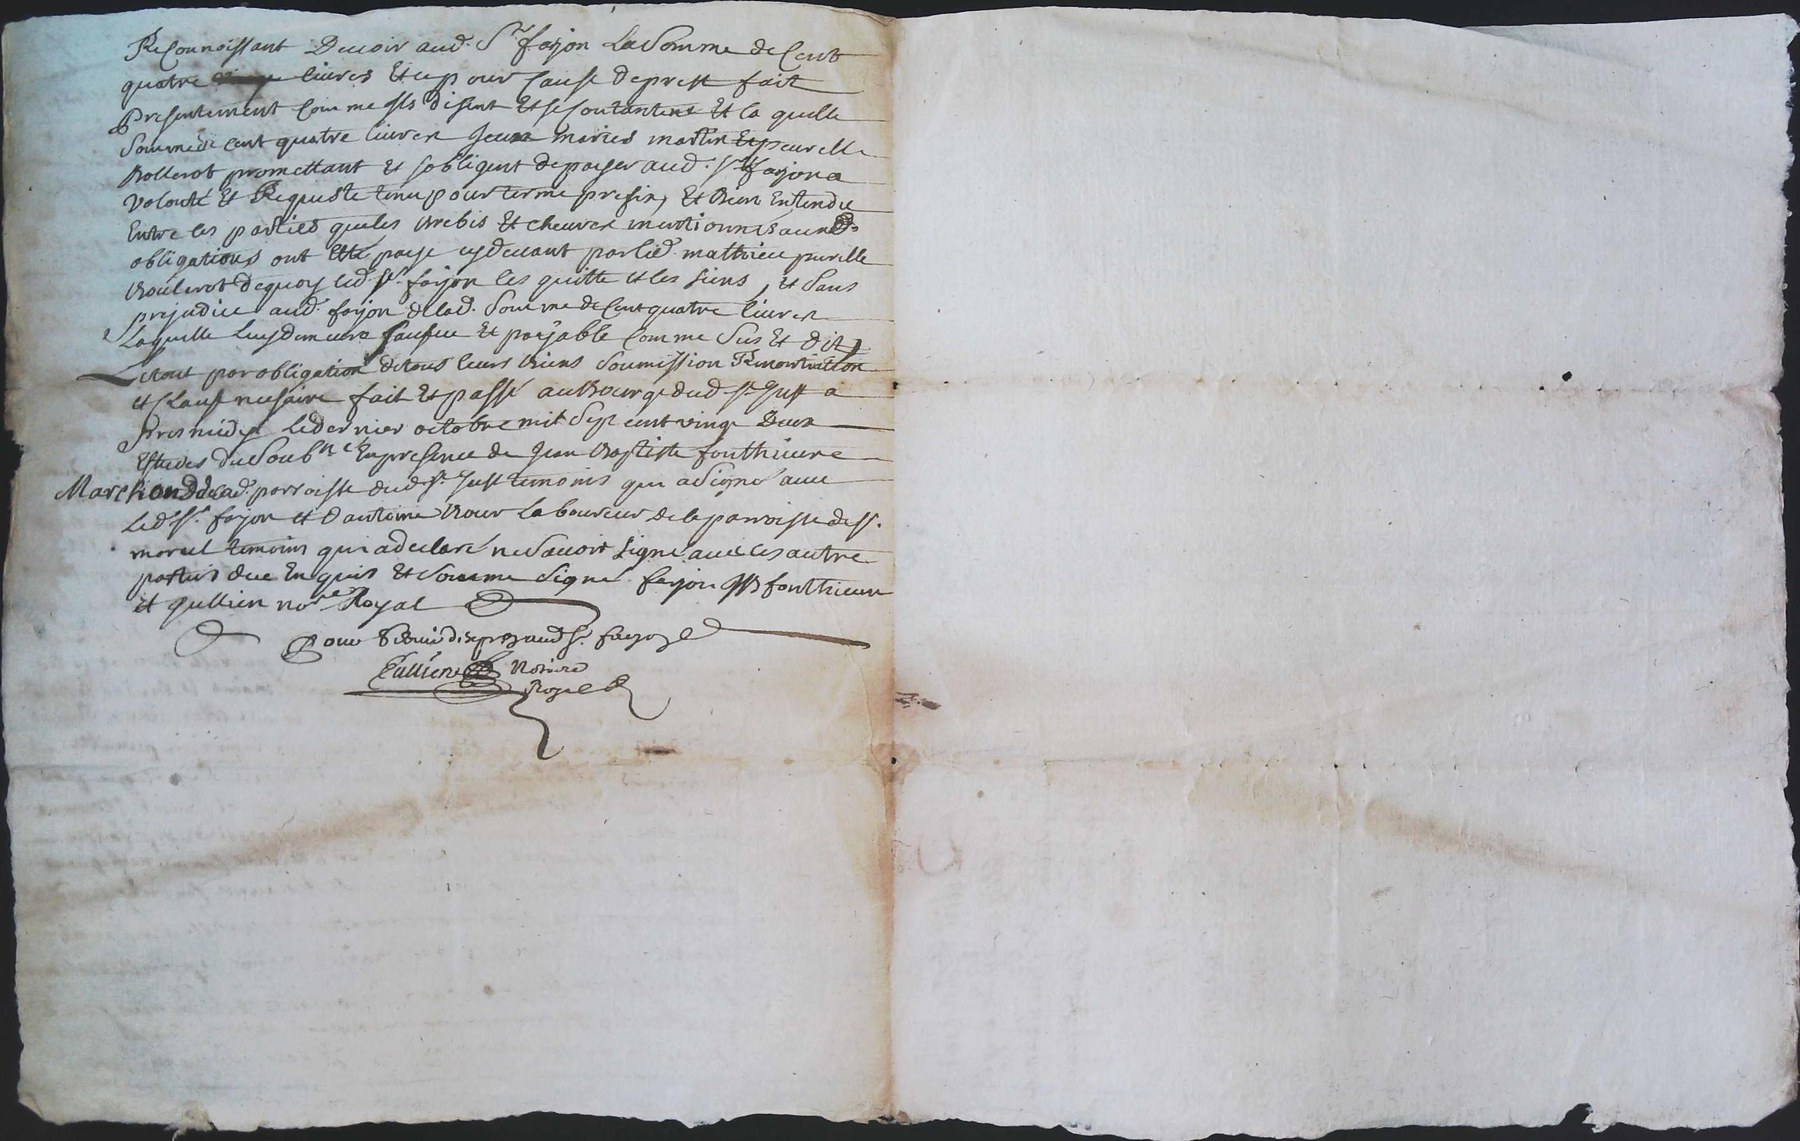 Reconnoissant Devoir aud. Sr. fayon La Somme de Cent
quatre livres Et ce pour Cause de prest fait
presentement Comme ils disent Et se contantent Et la quelle
Somme de cent quatre livres Jeux maries martin Et
Rollerot promettant Et sobligent de payer aud. Sr. fayon a
volonté Et Requeste tenu pour terme prefix, Et Bien Entendu
Entre les parties que les brebis Et chevres mentionnes
obligations ont Etté paye cy devant par led. mathieu
de quoy led. Sr. fayon les quitte et les siens, et Sans
prejudice aud. fayon de lad. Somme de Cent quatre livres
Laquelle luy demeure Et payable Comme Sus Et dit,
Le tout par obligation de tous leurs biens Soumission Renontiation
et Clause nessaire fait Et passé au Bourg dud. St Just a
pres midy Le dernier octobre mil Sept cent vingt Deux
Estudes du Soubne. En presence de Jean Baptiste fonthieure
Marchand de lad. parroisse dud. St. Just temoins qui a Signé avec
Led. Sr. fayon et d'antoine Roux Laboureur de la parroisse de St.
morel temoins qui a declaré ne Savoir Signé avec les autre
parties de ce Enquis Et Somme Signé fayon JB fonthieure
et Jullien nore. Royal
Pour aud. Sr. fayon
Jullien Notaire
Royal